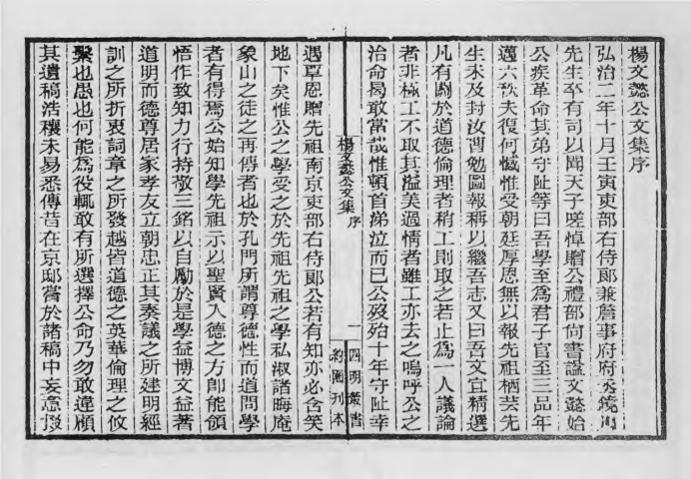 楊文懿公文集序
弘治二年十月壬寅吏部右侍郎兼詹事府府丞鏡川
先生卒有司以聞天子嗟悼贈公禮部尚書諡文懿始
公疾革命其弟守阯等曰吾學至爲君子官至三品年
邁六秩夫復何憾惟受朝廷厚恩無以報先祖栖芸先
生未及封汝曹勉圖報稱以繼吾志又曰吾文宜精選
凡有關於道德倫理者稍工則取之若止爲一人議論
者非極工不取其溢美過情者雖工亦去之嗚呼公之
治命曷敢當哉惟頓首涕泣而已公歿殆十年守阯幸
楊文懿公文集 序
一
四明叢書
約園刊本
遇覃恩贈先祖南京吏部右侍郎公若有知亦必含笑
地下矣惟公之學受之於先祖先祖之學私淑諸晦庵
象山之徒之再傳者也於孔門所謂尊德性而道問學
者有得焉公始知學先祖示以聖賢入德之方卽能領
悟作致知力行持敬三銘以自勵於是學益博文益著
道明而德尊居家孝友立朝忠正其奏議之所建明經
訓之所折衷詞章之所發越皆道德之英華倫理之攸
繫也愚也何能爲役輒敢有所選擇公命乃勿敢違顧
其遺稿浩穰未易悉傳昔在京邸嘗於諸稿中妄意掇